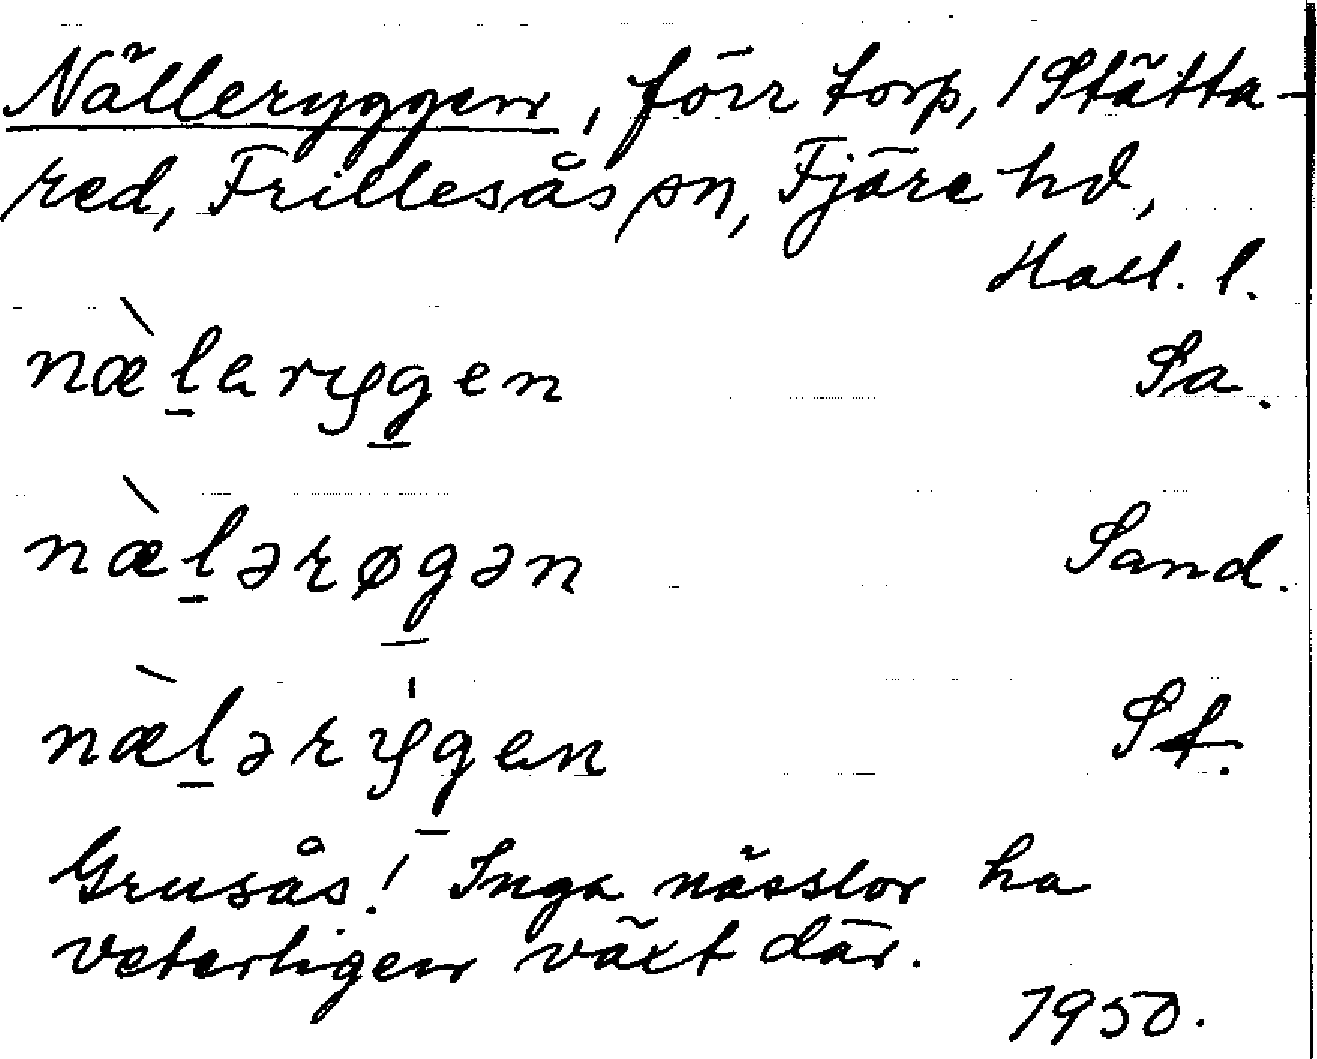 Nälleryggen, förr torp, 1 Stätta-
red, Frillesås sn, Fjäre hd,
Hall. l.
næ̀l̲erygen Sa.
næ̀l̲ərøg̲ən Sand.
næ̀l̲ərýg̲en St.
Grusås! Inga nässlor ha
veterligen växt där.
1950.